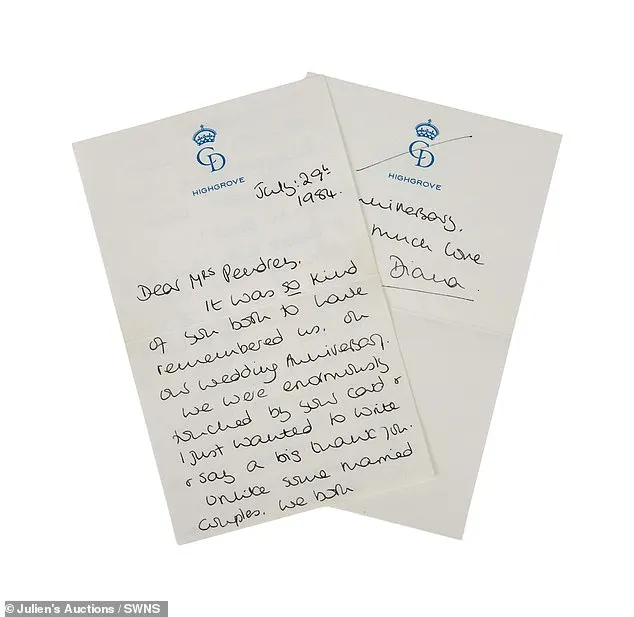 CD
HIGHGROVE
July: 29th
1984.
Dear Mrs Pendrey.
It was so kind
of you both to have
remembered us. on
our wedding Anniversary.
We were enormously
touched by your card &
I just wanted to write
& say a big thank you.
Unlike some married
couples. we both
CD
HIGHGROVE
nniversary.
much love
Diana.
© Julien's Auctions / SWNS